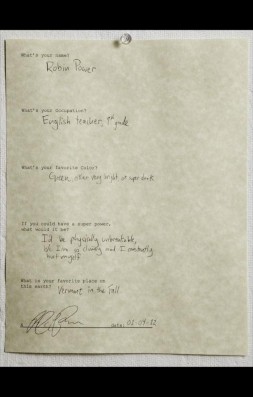 What's your name?
Robin Power
What's your Occupation?
English teacher, 9th grade
What's your favorite Color?
Green, either very bright or super dark
If you could have a super power,
what would it be?
I'd be physically unbreakable,
b/c I'm so clumsy and I constantly
hurt myself
What is your favorite place on
this earth? Vermont in the fall
x
date: 02-09-12